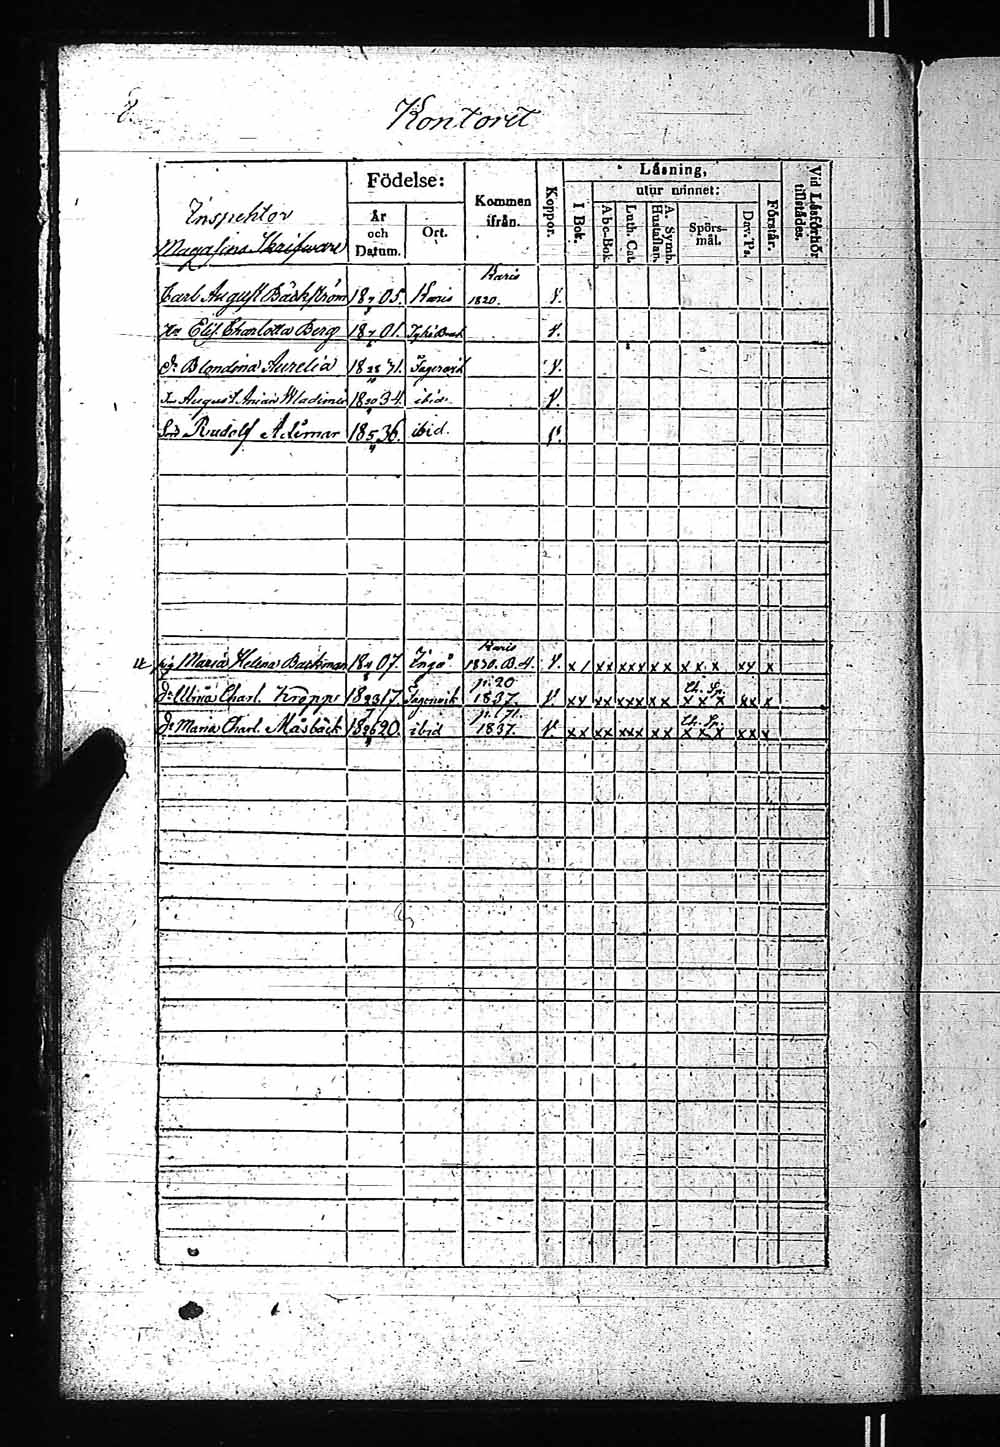 8.
Kontoret
Födelse:
Kommen ifrån.
Koppor.
Låsning,
I Bok.
utur minnet:
Abc-Bok
Luth. Cat.
A. Symb. Hustaflan.
Spörs-mål.
Dav. Ps.
Förstår.
Vid Läsförhör tillstädes.
År och Datum.
Ort.
Inspektor
Magasins Skrifware
Karis
Carl August Bäckström 18 05. Karis 1820. v.
Elis. Charlotta Berg 18 01. v.
Dr Blondina Aurelia 18 31. Fagervik v.
August Wladimir 18 34. ibid. v.
Son Rudolf 18 36. ibid. v.
Karis
pig Maria Helena Backman 18 07. Ingå 1830. B. 4. v. x / xx xxx xx x x x xx x
p. 20
Dr Ulrica Charl. Kropp 18 17. Fagervik 1837. v. xx xx xxx xx x x x xx x
p. 171.
Dr Maria Charl. Måsbäck 18 20. ibid 1837. v. xx xx xxx xx x x x xx x